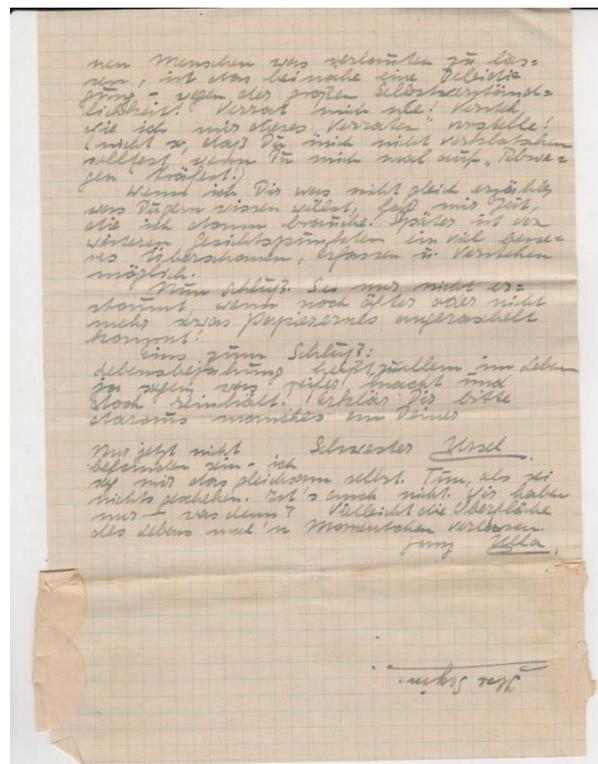 nen Menschen was verlauten zu las=
sen, ist das beinahe eine Beleidi=
gung – wegen der großen Selbstverständ=
lichkeit! Verrat mich nie! Versteh,
wie ich mir dieses „Verraten“ vorstelle!
(nicht so, daß Du mich nicht vertratschen
solltest, wenn Du mich mal auf „Abwe=
gen“ träfest!)
Wenn ich Dir was nicht gleich erzähle,
was Du gern wissen willst, laß mir Zeit,
die ich dann brauche. Später ist von
weiteren Gesichtspunkten ein viel besse=
res Überschauen, Erfassen u. Verstehen
möglich.
Nun Schluß. Sei nur nicht er=
staunt, wenn noch öfter oder nicht
mehr etwas Papierernes angeraschelt
kommt!
Eins zum Schluß:
Lebensbejahung heißt, allem im Leben
ja sagen, was reifer macht und
doch reinhält. Erklär Dir bitte
daraus manches an Deiner
Schwester Ursel.
Nur jetzt nicht
befunden sein – ich
sag mir das gleichsam selbst. Tun, als sei
nichts geschehen. Ist's auch nicht. Wir haben
nur – was denn? Vielleicht die Oberfläche
des Lebens mal 'n Momentchen verlassen.